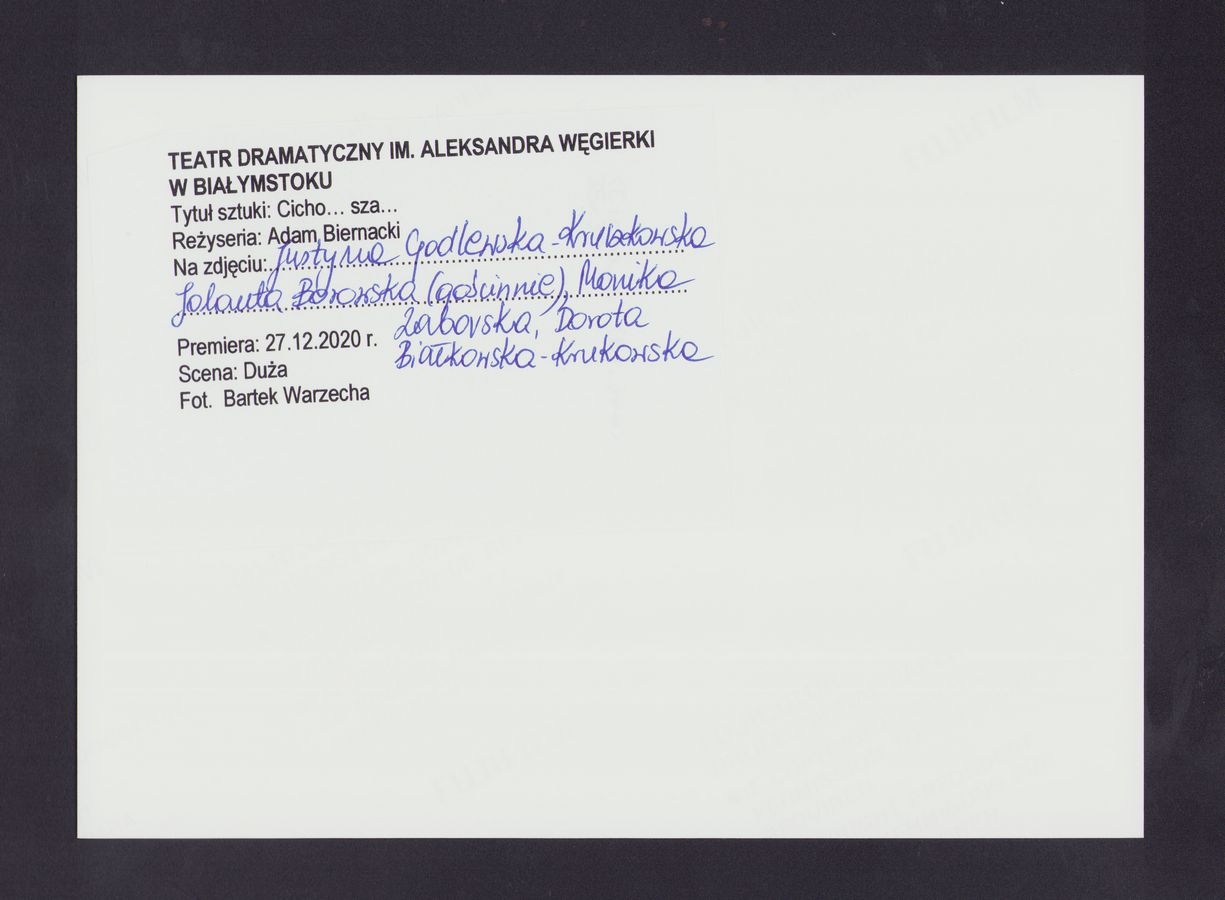 TEATR DRAMATYCZNY IM. ALEKSANDRA WĘGIERKI
W BIAŁYMSTOKU
Tytuł sztuki: Cicho... sza...
Reżyseria: Adam Biernacki
Na zdjęciu: Justyna Godlewska-Kruczkowska
Jolanta Borowska (gościnnie), Monika
Zaborska, Dorota
Białkowska-Krukowska
Premiera: 27.12.2020 r.
Scena: Duża
Fot. Bartek Warzecha